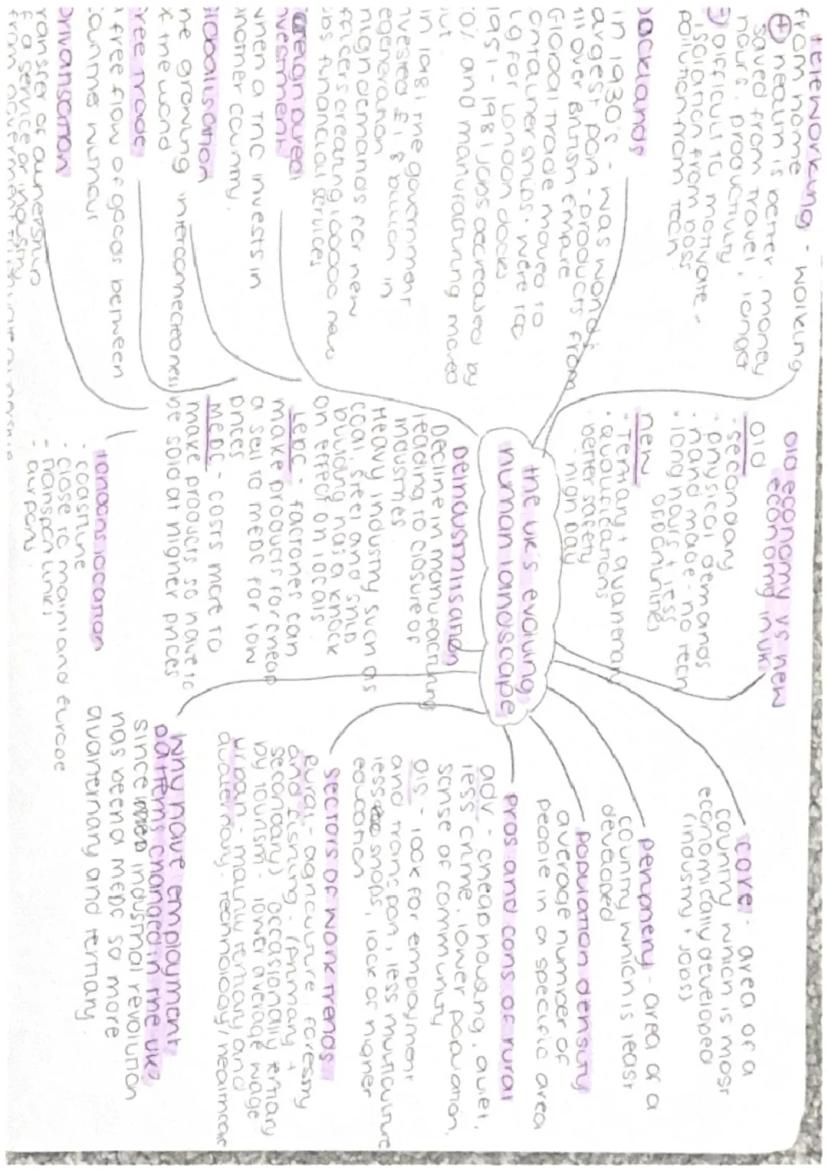 teleworking - working
from home
+ health is better, money
saved from travel, longer
hours, productivity
- difficult to motivate -
isolation from boss
pollution from tech
docklands
in 1930's - was world's
largest port - products from
all over British empire
Global trade moved to
container ships, were too
big for London docks
1951 - 1981 jobs decreased by
and manufacturing moved
out.
in 1981 the government
invested £1.8 billion in
regeneration
high demands for new
offices creating 100000 new
jobs financial services
foreign direct
investment
when a TNC invests in
another country.
globalisation
the growing interconnectedness
of the world
free trade
free flow of goods between
countries without
privatisation
transfer of ownership
of a service or industry
from government
old economy vs new
economy in UK
old
- secondary
- physical demands
- hand made - no tech
- long hours + less
opportunities
new
- Tertiary + quaternary
- qualifications
- better safety
- high pay
the UK's evolving
human landscape
Deindustrilisation
Decline in manufacturing
leading to closure of
industries
Heavy industry such as
coal, steel and ship
building has a knock
on effect on locals
LEDC - factories can
make products for cheap
a sell to MEDC for low
prices
MEDC - costs more to
make products so have to
be sold at higher prices
londons location
- coastline
- close to mainland europe
- transport links
- airports
core - area of a
country which is most
economically developed
(industry + jobs)
periphery - area of a
country which is least
developed
population density
average number of
people in a specific area
pros and cons of rural
adv - cheap housing, quiet,
less crime, lower population,
sense of community
dis - lack for employment
and transport, less multiculture
less shops, lack of higher
education
sectors of work trends
rural - agriculture, forestry
and fishing - (primary +
secondary) occasionally tertiary
by tourism - lower average wage
urban - mainly tertiary and
quaternary - technology/healthcare
why have employment
patterns changed in the UK?
since industrial revolution
has been a MEDC so more
quaternary and tertiary.